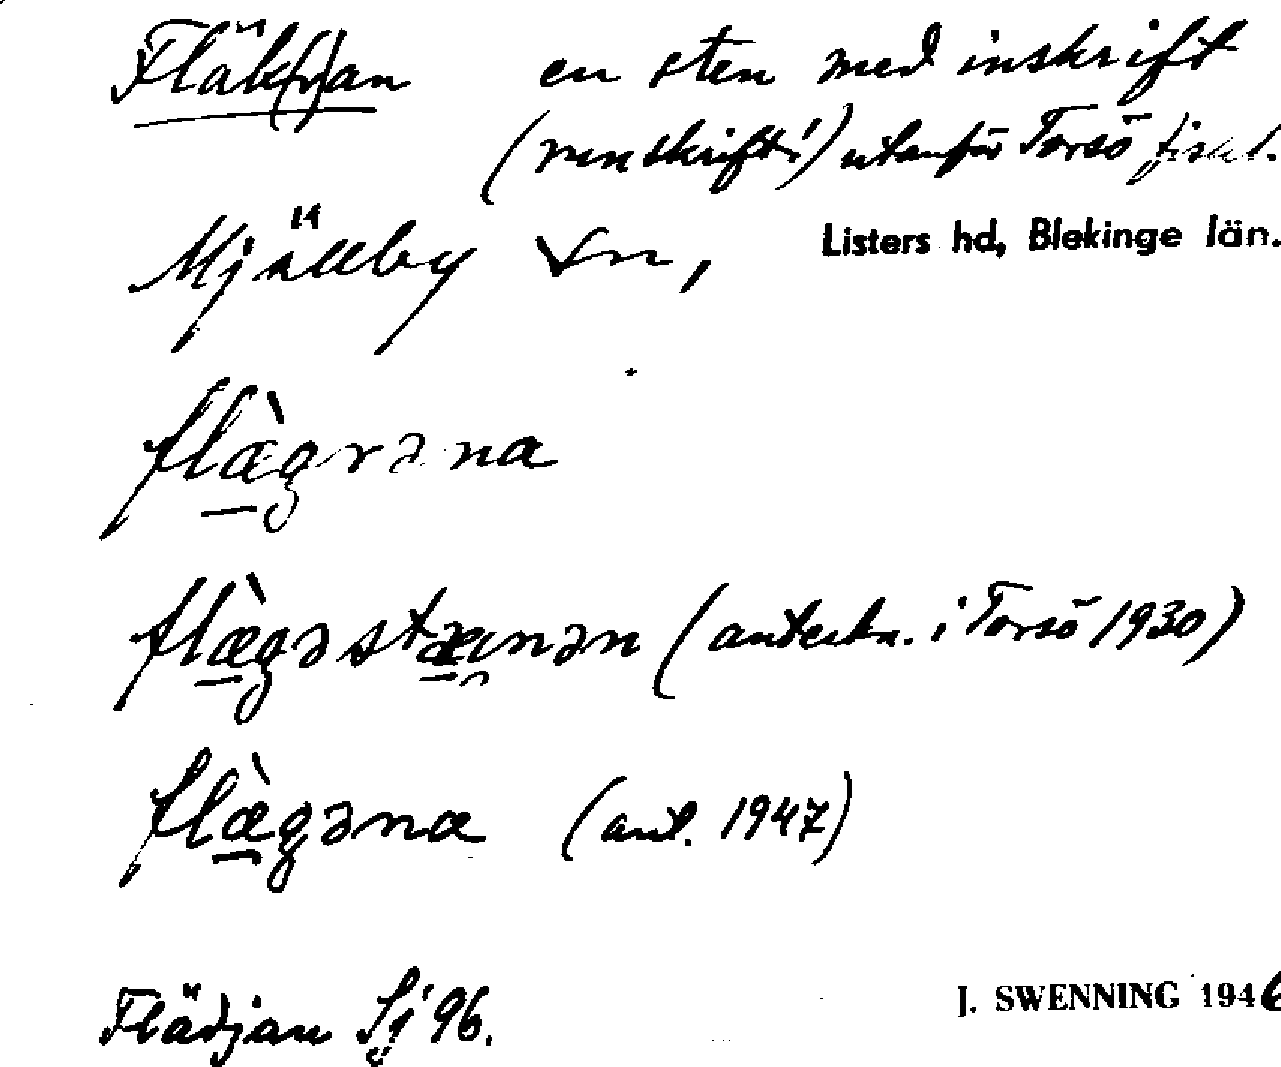 Fläk(r)an en sten med inskrift
(runskrift!) utanför Torsö fiskl.
Mjällby sn, Listers hd, Blekinge län.
flæ̀grəna
flæ̀gəstæinən (anteckn. i Torsö 1930)
flæ̀gəna (ant. 1947)
Flädjan Sj 96. J. SWENNING 1946